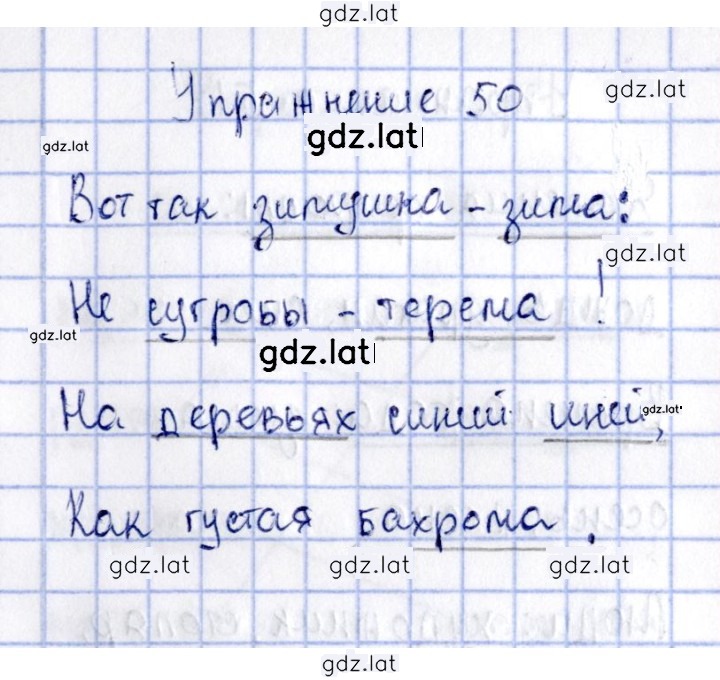 gdz.lat
Упражнение 50
gdz.lat
gdz.lat
gdz.lat
Вот так зимушка - зима:
gdz.lat
Не сугробы - терема!
gdz.lat
gdz.lat
На деревьях синий иней,
gdz.lat
Как густая бахрома.
gdz.lat gdz.lat gdz.lat
gdz.lat